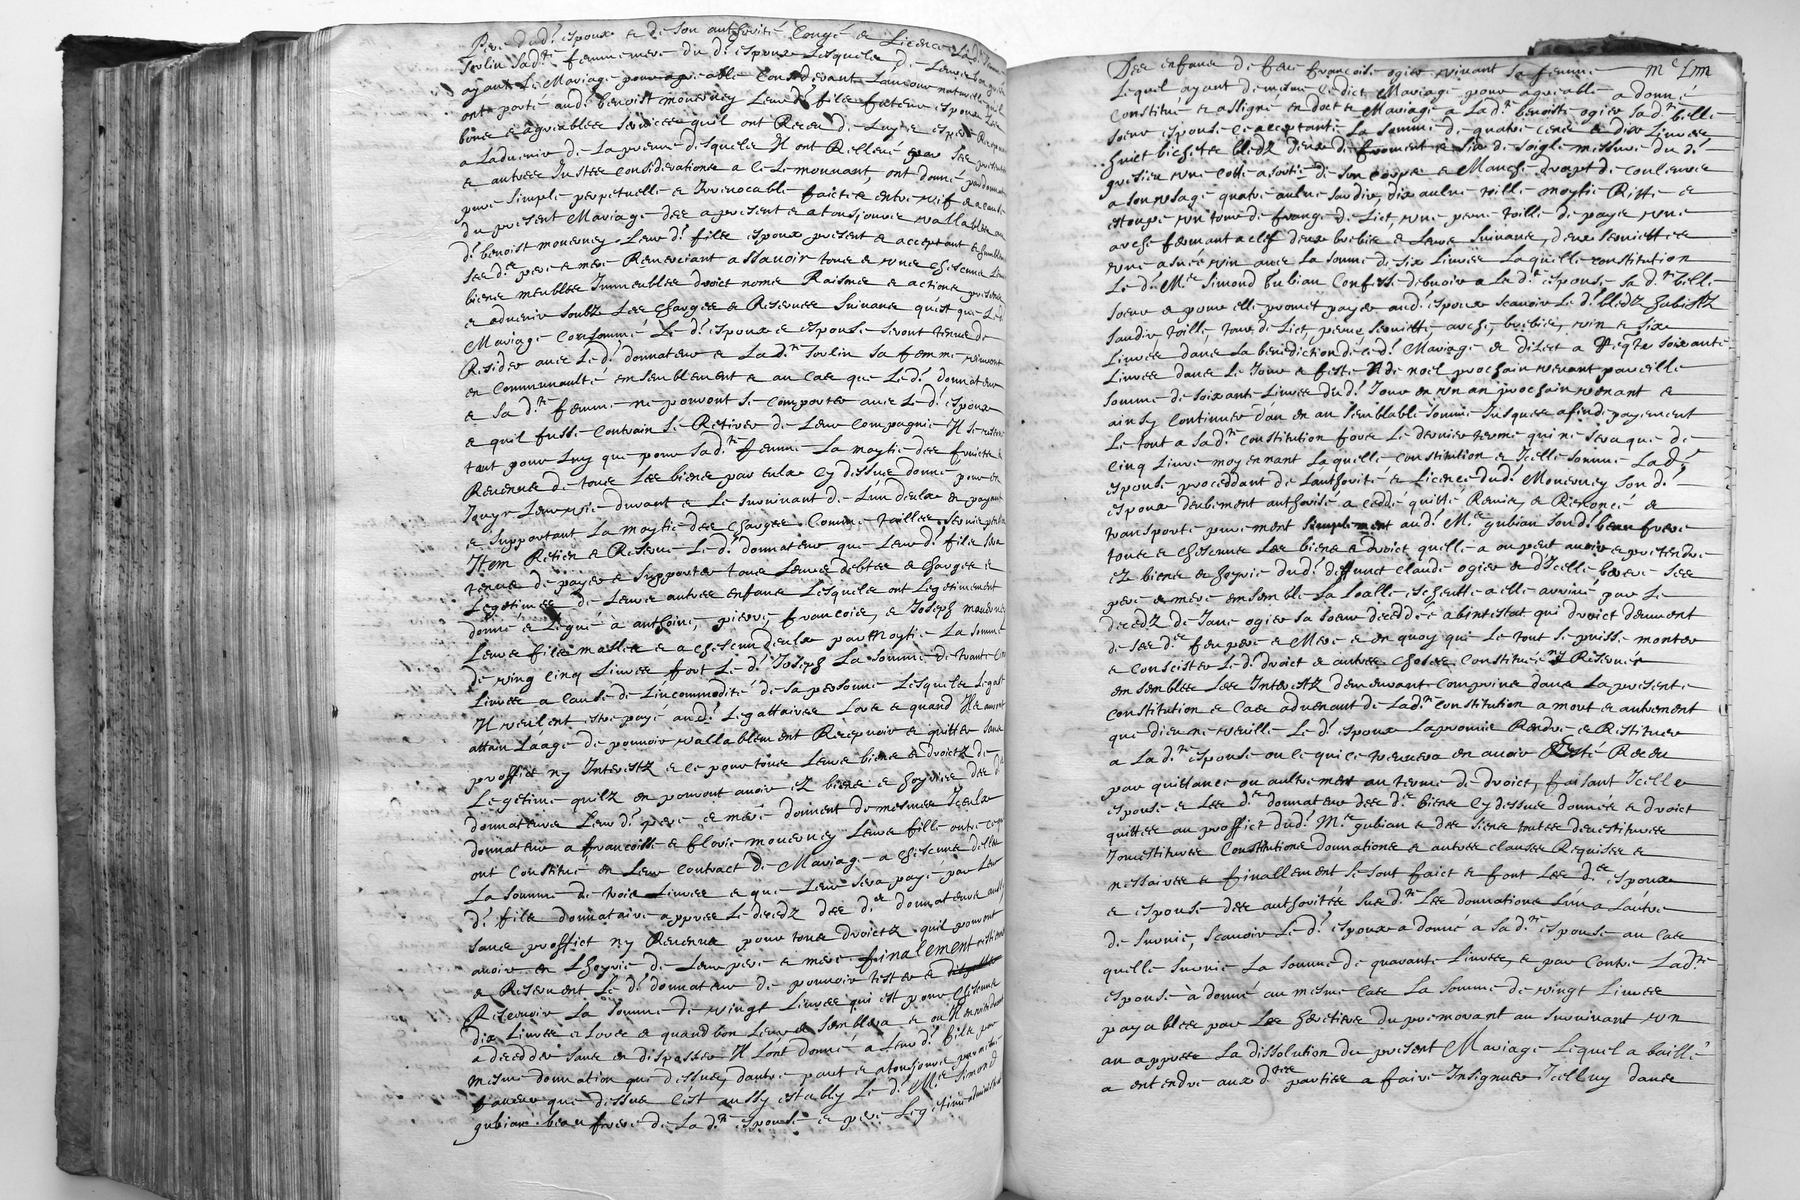 Pere dud.t espoux & de son authorité Congé & Licence La d.te
Toulin sad.te femme mere du d.t espoux Lesquels de Leur bon gre
ayant Le Mariage pour agreable Considerant Lamour naturelle quil
ont porté aud.t benoist mouerney Leur d.t fils futeur espoux Les
bons & agreables services quil ont Receu de Luy & espere Recepvoir
a Ladvenir de La preuve desquels Il ont Rellevé par ses presentes
& autres Justes considerations a ce Le mouvant, ont donné par donnation
pure simple perpetuelle & Irrevocable faicte entre vifs & a cause
du present Mariage des a present & a tousjours vallable au
d.t benoist mouerney Leur d.t fils espoux present & acceptant & humblement
ses d.ts pere & mere Remerciant a ssavoir tous & uns chescuns Leurs
biens meubles Immeubles droict noms Raisons & actions presents
& advenir soubz Les charges & Reserves suivans quest que Led.t
Mariage Consommé Le d.t espoux & espouse seront tenus de
Resider avec Le d.t donnateur & La d.te Toulin sa femme vivront
en Communaulté ensemblement & au Cas que Le d.t donnateur
& sa d.te femme ne pouront se Comporter avec Le d.t espoux
& quil fusse Contrain se Retirer de Leur Compagnie Il se reserve
tant pour Luy que pour sad.te femme La moytie des fruicts &
Revenus de tous Les biens par eulx cy dessus donné pour en
Jouyr Leur vie durant & Le survivant de L'un deulx en payant
& supportant La moytie des charges Comme tailles servis pention
Item Retien & Reserve Le d.t donnateur que Leur d.t fils sera
tenus de payer & supporter tous Leurs debtes & charges &
Legetimes de Leurs autres enfans Lesquels ont Legetimement
donné & Legué à anthoine, pierre, francois, & Joseph mouerney
Leurs fils masles & a chescun deulx par Moytie La somme
de ving cinq Livres fors Le d.t Joseph La somme de trante
Livres a cause de L'incommodité de sa personne Lesquels Legats
Il veulent estre payé aud.t Legattaires Lors & quand Ils auront
attain Láage de pouvoir vallablement Recepvoir & quitter sans
proffict ny Interestz & ce pour tous Leurs biens & droictz de
Legetime quilz en pouront avoir ez biens & hoyries des d.ts
donnateurs Leur d.t pere & mere donnent de mesmes Iceulx
donnateur a francoise & florie mouerney Leurs fille outre ce quil
ont Constitué en Leur Contract de Mariage a chescune delles
La somme de trois Livres & que Leur sera payé par Leur
d.t fils donnataire apprres Le decedz des d.ts donnateurs aussy
sans proffict ny Revenus pour tous droictz quil pouront
avoir en L'hoyrie de Leur pere & mere finalement
& Reservent Le d.t donnateur de pouvoir tester &
Reservoir La somme de vingt Livres qui est pour chescun
dix Livres & Lors & quand bon Leurs semblera & ou Il viendroit
a decedder sans en dispasser Il L'ont donné a Leur d.t fils par
mesme donnation que dessus, dautre part & a tousjours par mesme
faveur que dessus cest aussy estably Le d.t M.re Simond
gubian beau frere de La d.te espouse & pere Legetime administrateur
Des enfans de feue francoise ogier vivant sa femme
m.e Lm
Lequel ayant de mesme Ledict Mariage pour agreable a donné
Constitué & assigné en doct & Mariage a La d.te benoiste ogier sa d.te belle
soeur espouse ce acceptante La somme de quatre cens & dix Livres
huict bichets bledz deux de froment & six de soigle messure du d.t
gresieu une cotte assortie de son corps & Manche drapt de couleurs
a son usage quatre aulne sardis, dix aulne toille moytie Ritte &
estoupe un tour de frange de Lict, une perre toille de paye une
arche fermant a clef deux brebis & Leurs suivans, deux serviettes
une asnee vin avec La somme de six Livres Laquelle constitution
Le d.t M.re Simond Gubian Confesse debvoir a La d.te espouse sa d.te belle
soeur & pour elle promet payer aud.t espoux scavoir Le d.t bledz habistz
sardis toille, tour de Lict, perre serviette arche, brebis, vin & six
Livres dans La benediction de ce d.t Mariage & dilect a soixante
Livres dans Le Jour & feste de noel prochain venant pareille
somme de soixante Livres dud.t Jour en un an prochain venant &
ainsy continuer d'an en an semblable somme Jusques a fin de payement
Le tout a sa d.te constitution fors Le dernier terme qui ne sera que de
cinq Livre moyennant Laquelle constitution & Icelle somme Lad.te
espouse proceddant de Lauthorité & Licence dud.t Mouerney son d.t
espoux deubement authorisé a ceddé quitté Remis & Renoncé &
transporté purement simplement aud.t M.re gubian son d.t beau frere
tous & chescuns Les biens & droict quelle a ou peut avoir & pretendre
ez biens & hoyrie dud.t deffunct claude ogier & d'Icelle ses
pere & mere ensemble La Loalle escheutte a elle arrivee par Le
decedz de Jane ogier sa soeur deceddée abintestat qui droict dement
de ses d.ts feu pere & Mere & en quoy que Le tout se puisse monter
& Consister Le d.t droict & autres choses Constituées ny Reservées
ensembles Les Interestz demeurant Comprins dans La presente
Constitution & Cas advenant de Lad.te constitution a mort & autrement
que dieu ne veuille Le d.t espoux La promis Rendre & Restituer
a La d.te espouse ou le qui ce trouvera en avoir Resté Receu
par quittance ou aultrement au terme de droict, faisant Icelle
espouse & Les d.ts donnateur des d.ts biens cy dessus donnés & droict
quittes au proffict dud.t M.re gubian & des siens toutes devestitures
Jnvestitures Constitutions donnations & autres clauses Requises &
nessaires & finallement se sont faict & font Les d.ts espoux
& espouse des authorittés sus d.tes Les donnations L'un a Lautre
de survie, scavoir Le d.t espoux a donné a sa d.te espouse au cas
quelle survie La somme de quarante Livres, & par Contre Lad.te
espouse à donné au mesme Cas La somme de vingt Livres
payables par Les heretiers du premorant au survivant un
an appres La dissolution du present Mariage Lequel a baillé
a entendre aux d.tes parties a faire Insignuer Icelluy dans